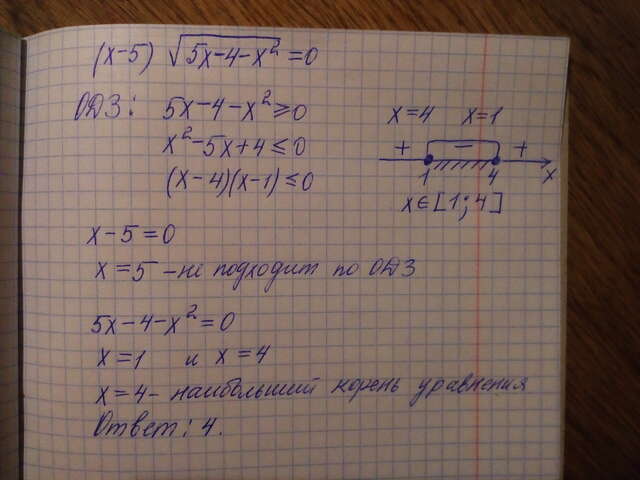 (x-5) √(5x-4-x²) =0
ОДЗ: 5x-4-x²≥0
x²-5x+4≤0
(x-4)(x-1)≤0
x=4 x=1
+ - +
1 4 x
x∈[1;4]
x-5=0
x=5 -не подходит по ОДЗ
5x-4-x²=0
x=1 и x=4
x=4- наибольший корень уравнения
Ответ: 4.